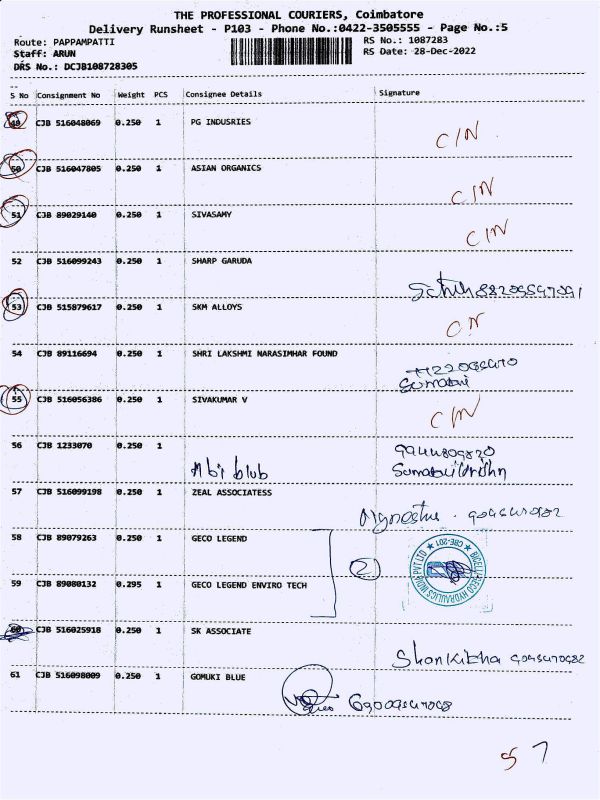 THE PROFESSIONAL COURIERS, Coimbatore
Delivery Runsheet - P103 - Phone No.:0422-3505555 - Page No.:5
Route: PAPPAMPATTI RS No.: 1087283
Staff: ARUN RS Date: 28-Dec-2022
DRS No.: DCJB108728305
S No Consignment No Weight PCS Consignee Details Signature
49 CJB 516048069 0.250 1 PG INDUSRIES C/N
50 CJB 516047805 0.250 1 ASIAN ORGANICS C/N
51 CJB 89029140 0.250 1 SIVASAMY C/N
52 CJB 516099243 0.250 1 SHARP GARUDA
53 CJB 515879617 0.250 1 SKM ALLOYS C/N
54 CJB 89116694 0.250 1 SHRI LAKSHMI NARASIMHAR FOUND
55 CJB 516056386 0.250 1 SIVAKUMAR V C/N
56 CJB 1233070 0.250 1
57 CJB 516099198 0.250 1 ZEAL ASSOCIATESS
58 CJB 89079263 0.250 1 GECO LEGEND
2
59 CJB 89080132 0.295 1 GECO LEGEND ENVIRO TECH
60 CJB 516025918 0.250 1 SK ASSOCIATE
61 CJB 516098009 0.250 1 GOMUKI BLUE
57